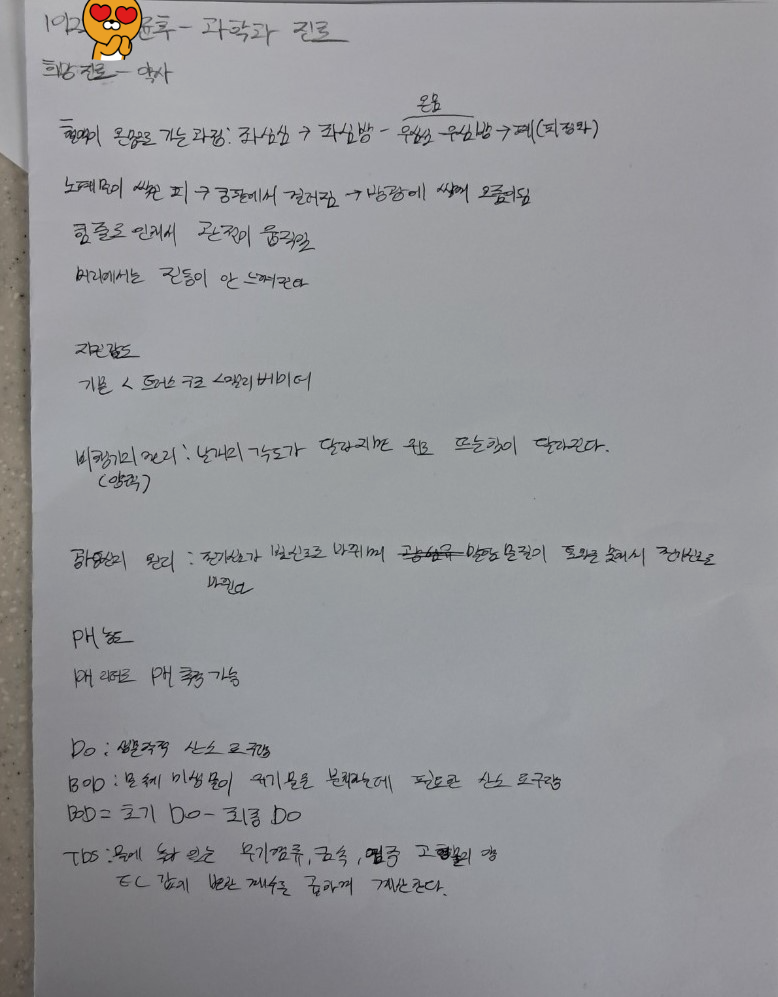 윤후 - 과학과 진로
희망 진로 - 약사
온몸
혈액이 온몸으로 가는 과정: 좌심실 → 좌심방 - 우심실 - 우심방 → 폐(피 정화)
노폐물이 쌓인 피 → 콩팥에서 걸러짐 → 방광에 쌓여 오줌이 됨
힘줄로 인해서 관절이 움직임
머리에서는 진동이 안 느껴진다
지진강도
기물 < 트러스 구조 < 엘리베이터
비행기의 원리 : 날개의 각도가 달라지면 위로 뜨는 힘이 달라진다.
(양력)
원리 : 전기신호가 빛신호로 바뀌며 물질이 전기신호로
바뀐다
PH 농도
PH 미터로 PH 측정 가능
DO : 산소 요구량
BOD : 물 속에 미생물이 유기물을 분해하는데 필요한 산소 요구량
BOD = 초기 DO - 최종 DO
TDS : 물에 녹아 있는 무기염류, 금속, 고형물의 양
EC 값에 변환 계수를 곱하여 계산한다.